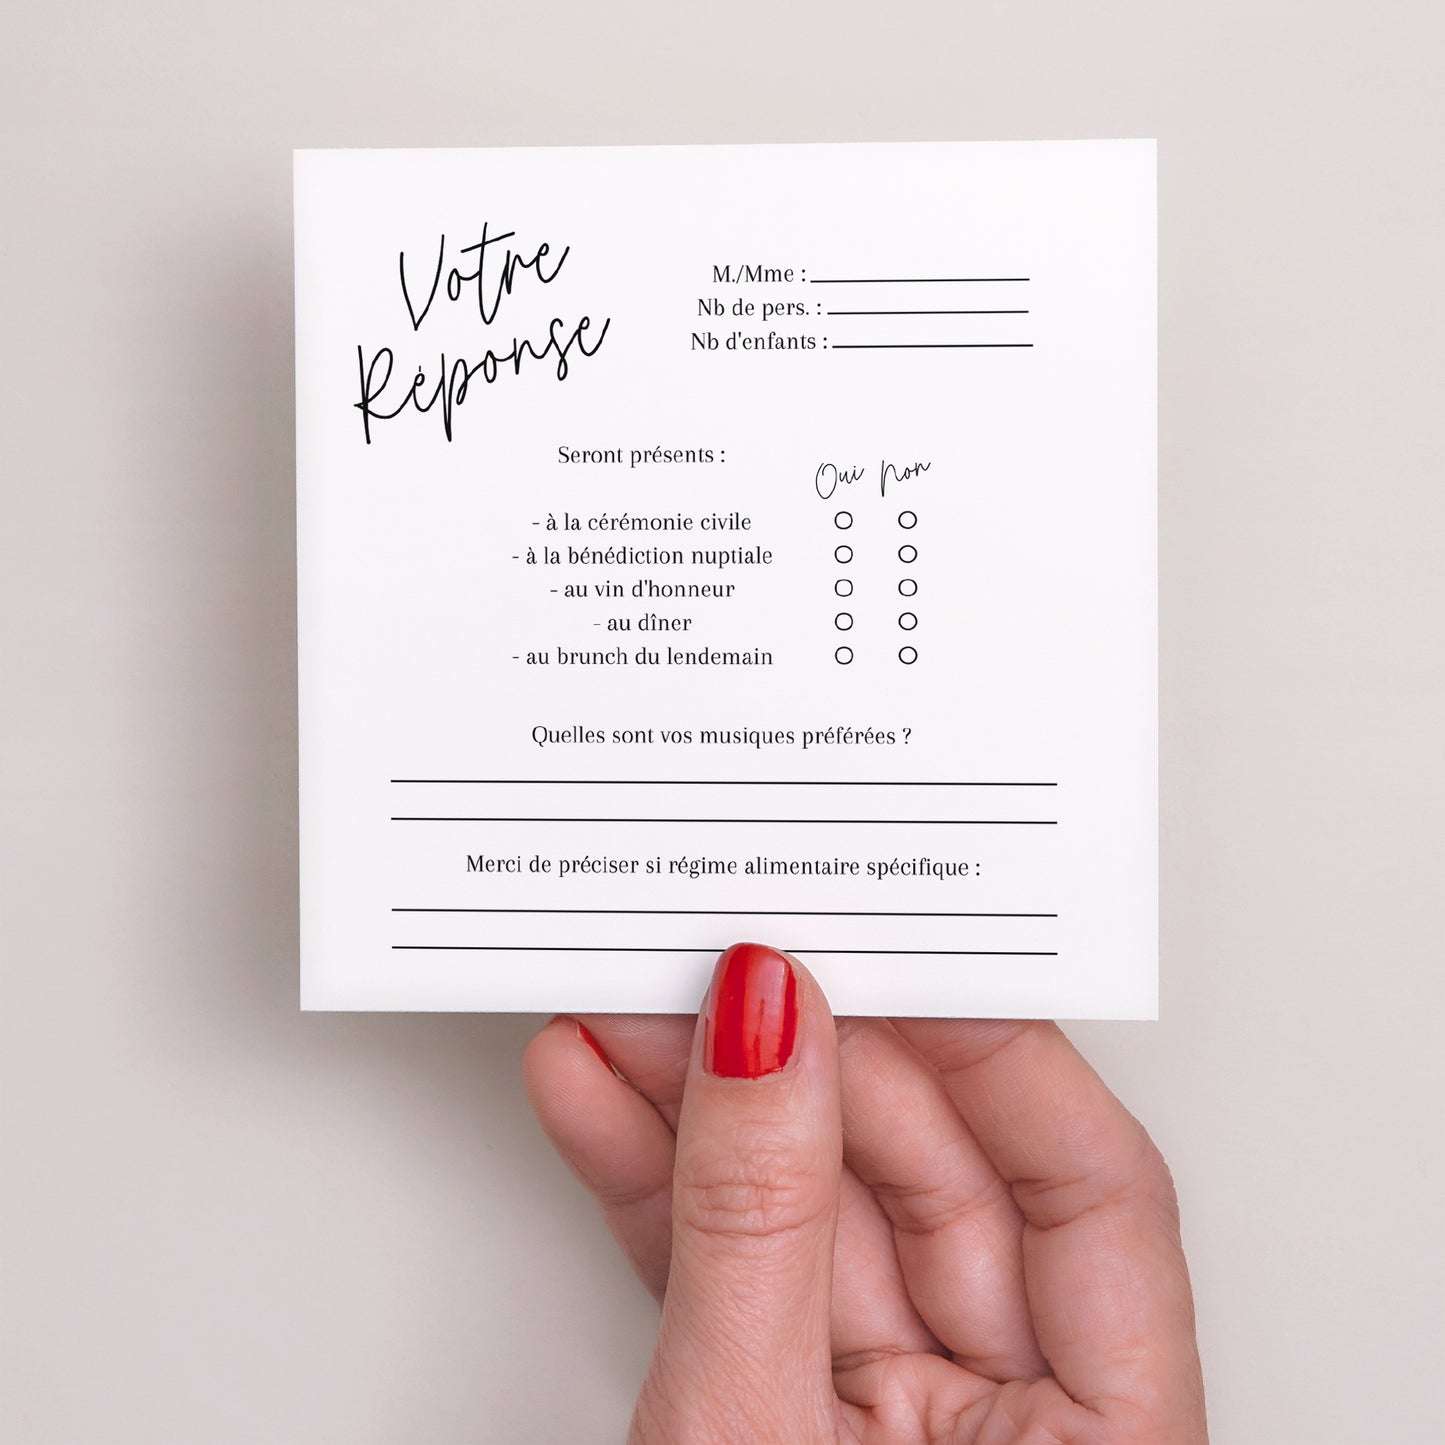 Votre
Réponse
M./Mme :
Nb de pers. :
Nb d'enfants :
Seront présents :
Oui Non
- à la cérémonie civile
- à la bénédiction nuptiale
- au vin d'honneur
- au dîner
- au brunch du lendemain
Quelles sont vos musiques préférées ?
Merci de préciser si régime alimentaire spécifique :